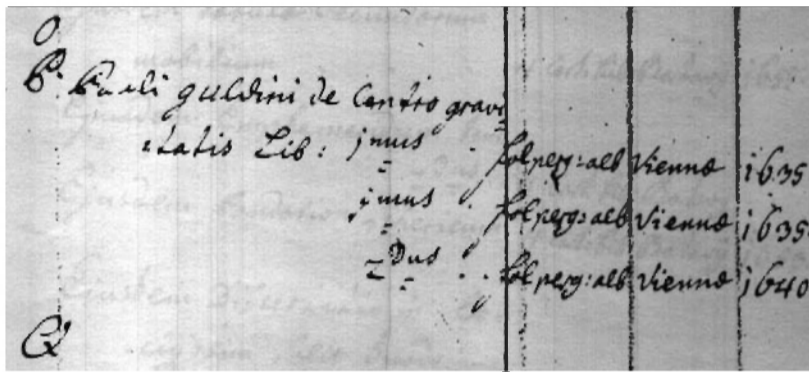 O
P. Pauli guldini de Centro gravi=
tatis Lib: jmus . fol perg: alb Viennæ 1635
jmus . fol perg: alb Viennæ 1635
2dus . . fol perg: alb Viennæ 1640
Q